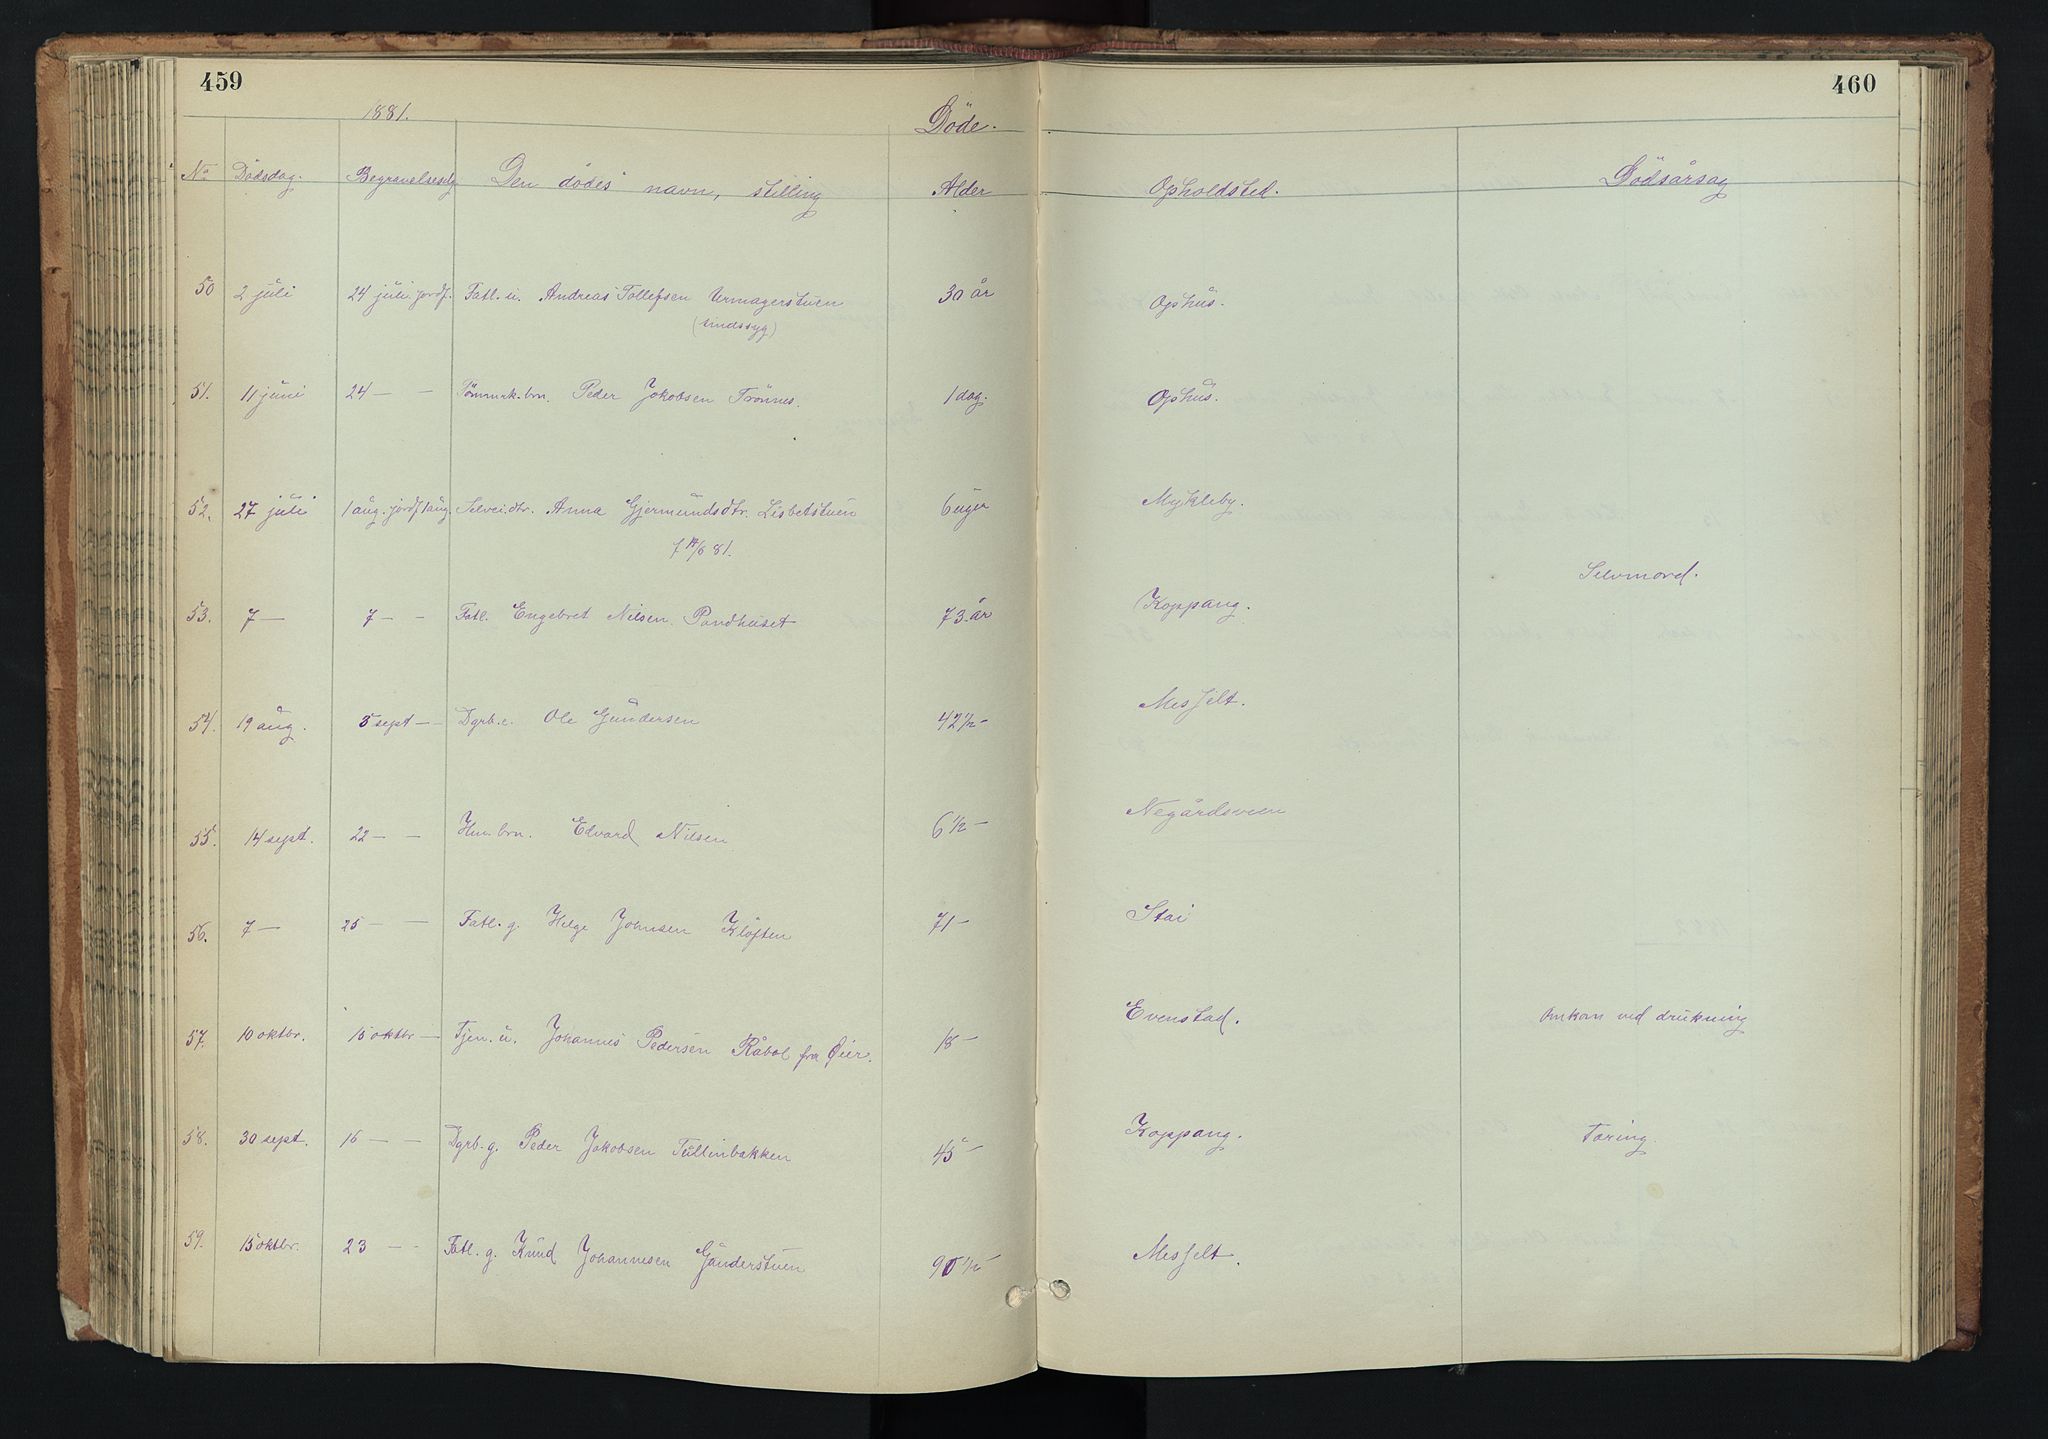 459
460
1881.
Döde.
No Dödsdag. Begravelsesdg Den dødes navn, stilling Alder Opholdsted. Dödsårsag
50 2 juli 24 juli. jordf. Fatl. u. Andreas Tollefsen Urmagerstuen 30 år Ophus.
(sindssyg)
51. 11 juni 24 — — Tömmrk. brn. Peder Jakobsen Trönnes. 1 dag. Ophus.
52. 27 juli 1 aug. jordf 1 aug. Selvei. dtr. Anna Gjermundsdtr. Lisbetstuen 6 uger Mykleby.
f 14/6 81.
53. 7 — 7 — — Fatl. Engebret Nilsen 73 år Koppang. Selvmord.
54. 19 aug. 5 sept — — Dgrb. e. Ole Gundersen 42 1/2 — Messelt.
55. 14 sept. 22 — — Hm. brn. Edvard Nilsen 6 1/2 — Negårdsveen
56. 7 — 25 — — Fatl. g. Helge Johnsen Klöften 71 — Stai
57. 10 oktbr. 15 oktbr — Tjen. u. Johannes Pedersen Råbol fra Öier. 18 — Evenstad. Omkom ved drukning
58. 30 sept. 16 — — Dgrb. g. Peder Jakobsen Tullinbakken 45 — Koppang. Tæring.
59. 15 oktbr. 23 — — Fatl. g. Knud Johannesen Gunderstuen 90 1/2 Messelt.